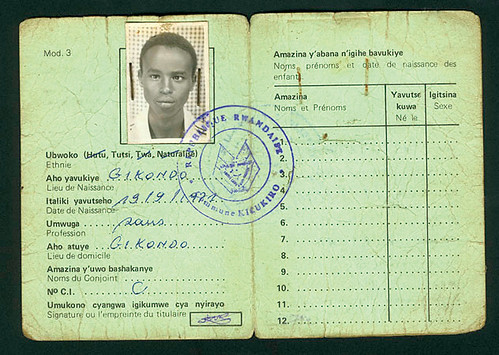 Mod. 3
Ubwoko (Hutu, Tutsi, Twa, Naturalisé)
Ethnie
Aho yavukiye GIKONDO
Lieu de Naissance
Italiki yavutseho
Date de Naissance
Umwuga sans
Profession
Aho atuye GIKONDO
Lieu de domicile
Amazina y'uwo bashakanye
Noms du Conjoint
N° C.I. C.
Umukono cyangwa igikumwe cya nyirayo
Signature ou l'empreinte du titulaire
REPUBLIQUE RWANDAISE
Commune KICUKIRO
Amazina y'abana n'igihe bavukiye
Noms, prénoms et date de naissance des
enfants
Amazina Yavutse Igitsina
Noms et Prénoms kuwa Sexe
Né le
1.
2.
3.
4.
5.
6.
7.
8.
9.
10.
11.
12.